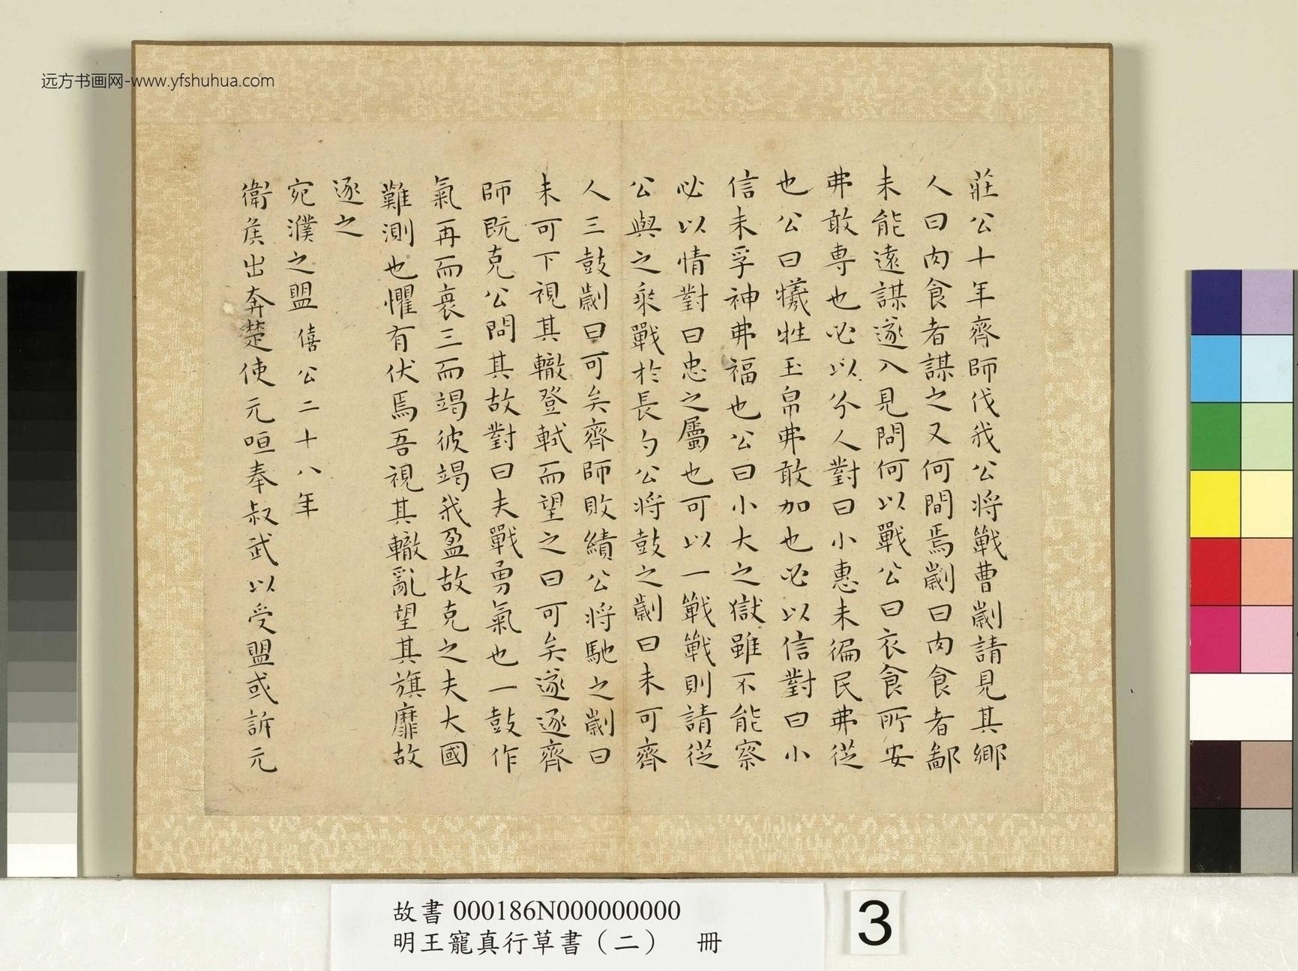 远方书画网-www.yfshuhua.com
莊公十年齊師伐我公將戰曹劌請見其鄉
人曰肉食者謀之又何間焉劌曰肉食者鄙
未能遠謀遂入見問何以戰公曰衣食所安
弗敢專也必以分人對曰小惠未徧民弗從
也公曰犧牲玉帛弗敢加也必以信對曰小
信未孚神弗福也公曰小大之獄雖不能察
必以情對曰忠之屬也可以一戰戰則請從
公與之乘戰於長勺公將鼓之劌曰未可齊
人三鼓劌曰可矣齊師敗績公將馳之劌曰
未可下視其轍登軾而望之曰可矣遂逐齊
師既克公問其故對曰夫戰勇氣也一鼓作
氣再而衰三而竭彼竭我盈故克之夫大國
難測也懼有伏焉吾視其轍亂望其旗靡故
逐之
宛濮之盟 僖公二十八年
衛侯出奔楚使元咺奉叔武以受盟或訴元
故書 000186N000000000
明王寵真行草書（二） 冊
3